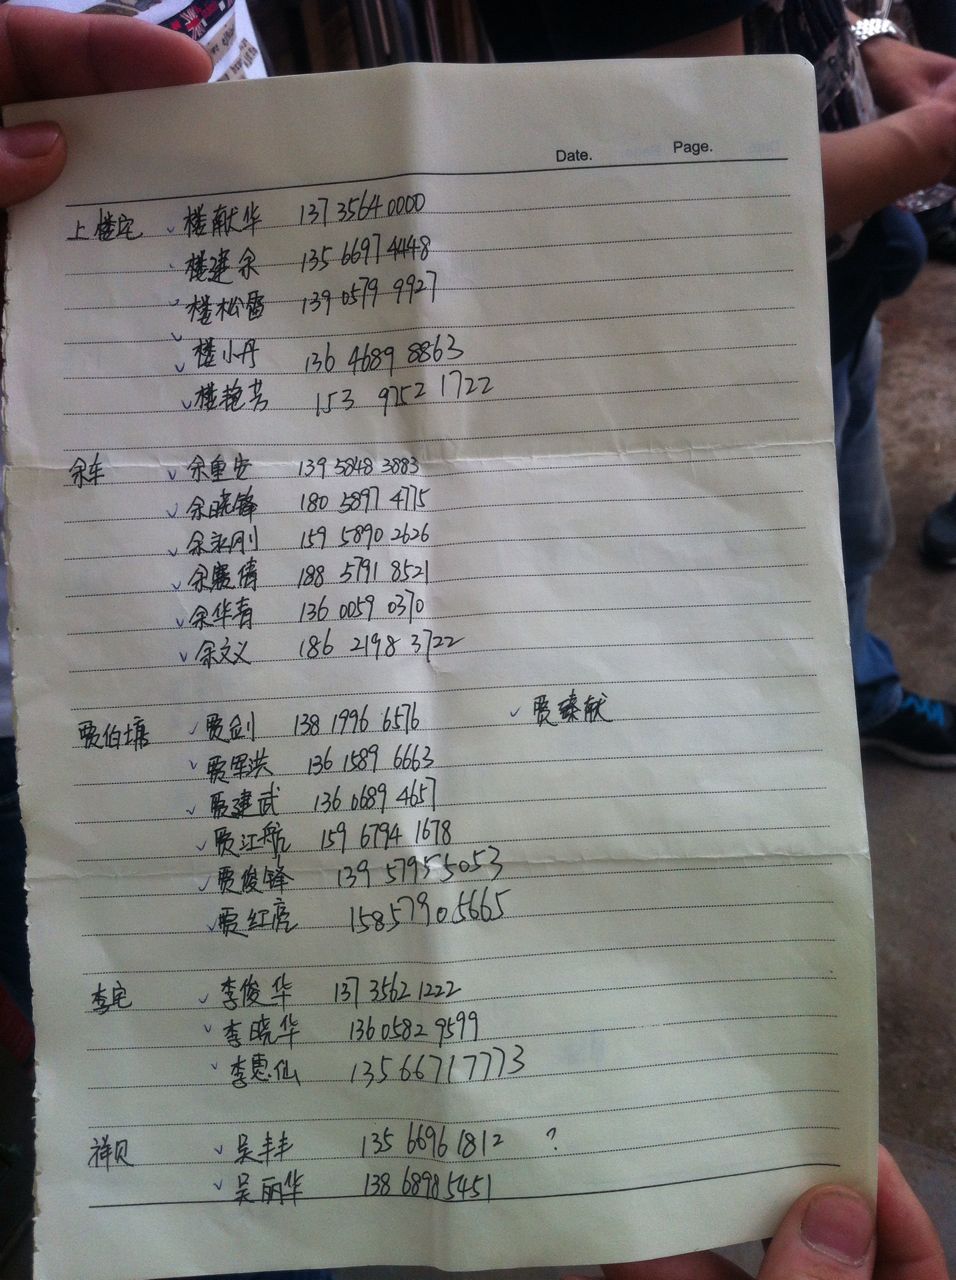 Date. Page.
上楼宅 楼献华 13735640000
楼建余 13566974448
楼松雷 139 0579 9927
楼小丹 136 4689 8863
楼艳芳 153 9752 1722
余车 余重安 139 5848 3883
余晓锋 180 5897 4775
余永刚 159 5890 2626
余展倩 188 5791 8521
余华青 136 0059 0370
余文义 186 2198 3722
贾伯塘 贾剑 138 1996 6576 贾臻献
贾军洪 136 1589 6663
贾建武 136 0689 4657
贾江航 159 6794 1678
贾俊锋 139 5795 5053
贾红亮 15857905665
李宅 李俊华 137 3562 1222
李晓华 136 0582 9599
李惠仙 13566717773
祥贝 吴丰丰 135 6696 1812 ?
吴丽华 138 6898 5451